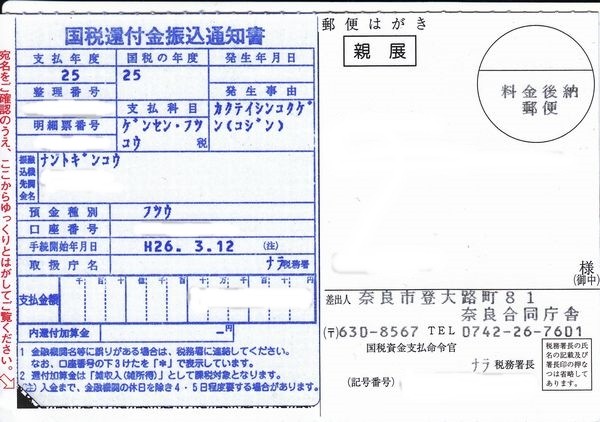 宛名をご確認のうえ、ここからゆっくりとはがしてご覧ください。
国税還付金振込通知書
支払年度 国税の年度 発生年月日
25 25
整理番号 発生事由
支払科目 カクテイシンコクゲン(コジン)
明細票番号 ゲンセン・フツコウ 税
振込先金融機関名 ナントギンコウ
預金種別 フツウ
口座番号
手続開始年月日 H26. 3.12 (注)
取扱庁名 ナラ税務署
支払金額 千 百 十 億 千 百 十 万 千 百 十 円
内還付加算金 -円
1 金融機関名等に誤りがある場合は、税務署に連絡してください。
なお、口座番号の下3けたを「*」で表示しています。
2 還付加算金は「雑収入(雑所得)」として課税対象となります。
(注) 入金まで、金融機関の休日を除き4・5日程度要する場合があります。
郵便はがき
親展
料金後納
郵便
様
(御中)
差出人 奈良市登大路町81
奈良合同庁舎
(〒)630-8567 TEL 0742-26-7601
国税資金支払命令官
ナラ 税務署長
(記号番号)
税務署長の氏名の記載及び署長印の押なつは省略してあります。